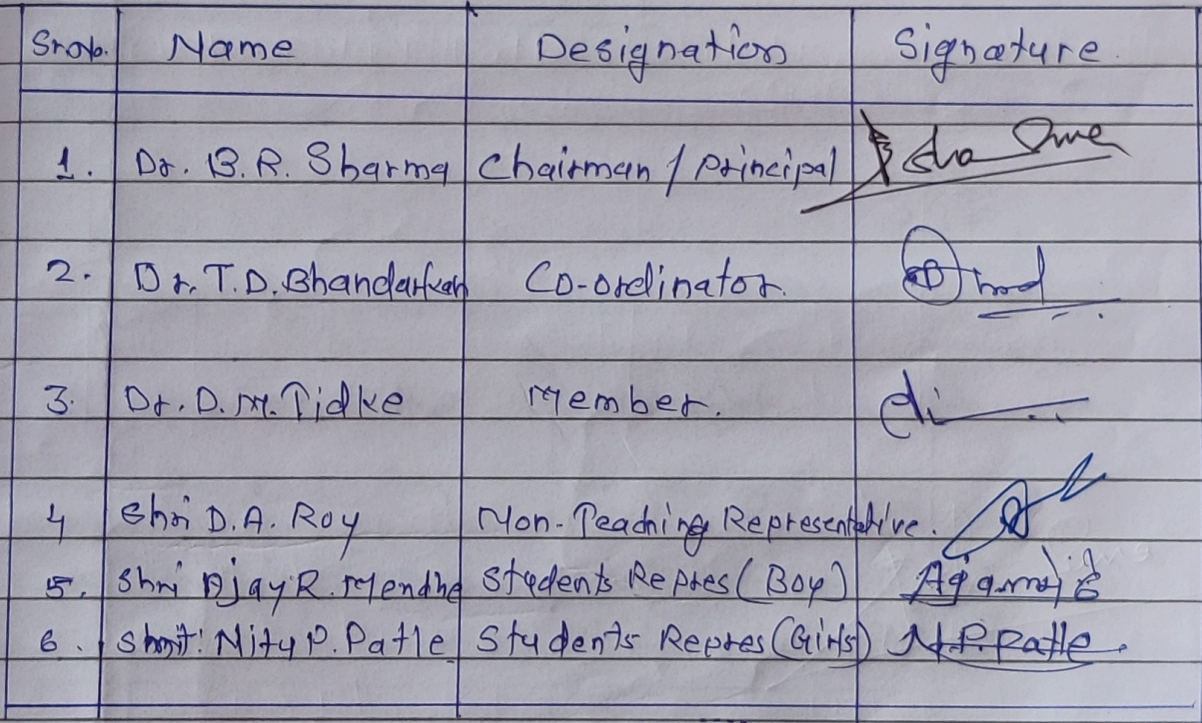 Sr.no. Name Designation Signature
1. Dr. B.R. Sharma Chairman / Principal
2. Dr. T.D. Bhandarkar Co-ordinator.
3. Dr. D.M. Tidke Member.
4 Shri D.A. Roy Non-Teaching Representative.
5. Shri Ajay R. Mendhe Students Repres (Boy)
6. Smt. Nitu P. Patle Students Repres (Girls) N.P.Patle.